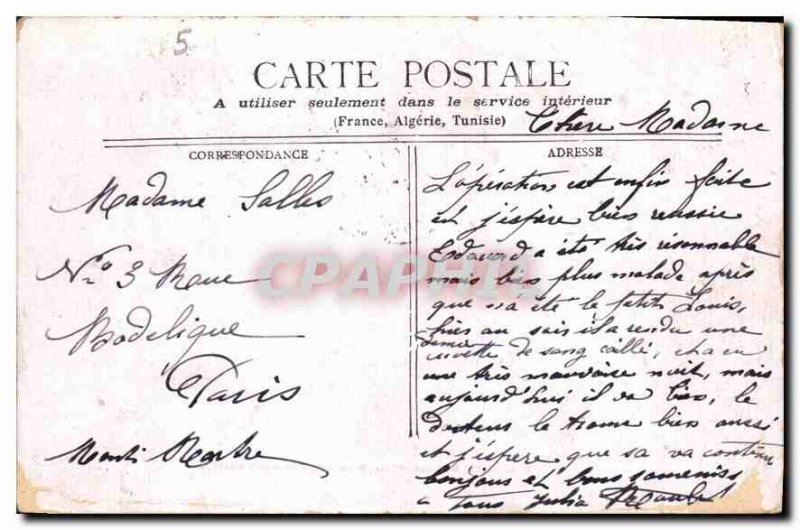 5
CARTE POSTALE
A utiliser seulement dans le service intérieur
(France, Algérie, Tunisie)
CORRESPONDANCE
Madame Salles
N° 3 Rue
Bodelique
Paris
Monti Martre
ADRESSE
Chere Madame
L'opération est enfin faite
et j'espère bien reussie
Edouard a été très résonnable
mais bien plus malade après
que n'a été le petit Louis,
hier au soir il a rendu une
demie
cuvette de sang caillé, et a eu
une très mauvaise nuit, mais
aujourd'hui il va bien, le
docteur le trouve bien aussi
et j'espere que sa va continu
bonjours et bons
a tous Julia
CPAPHIL